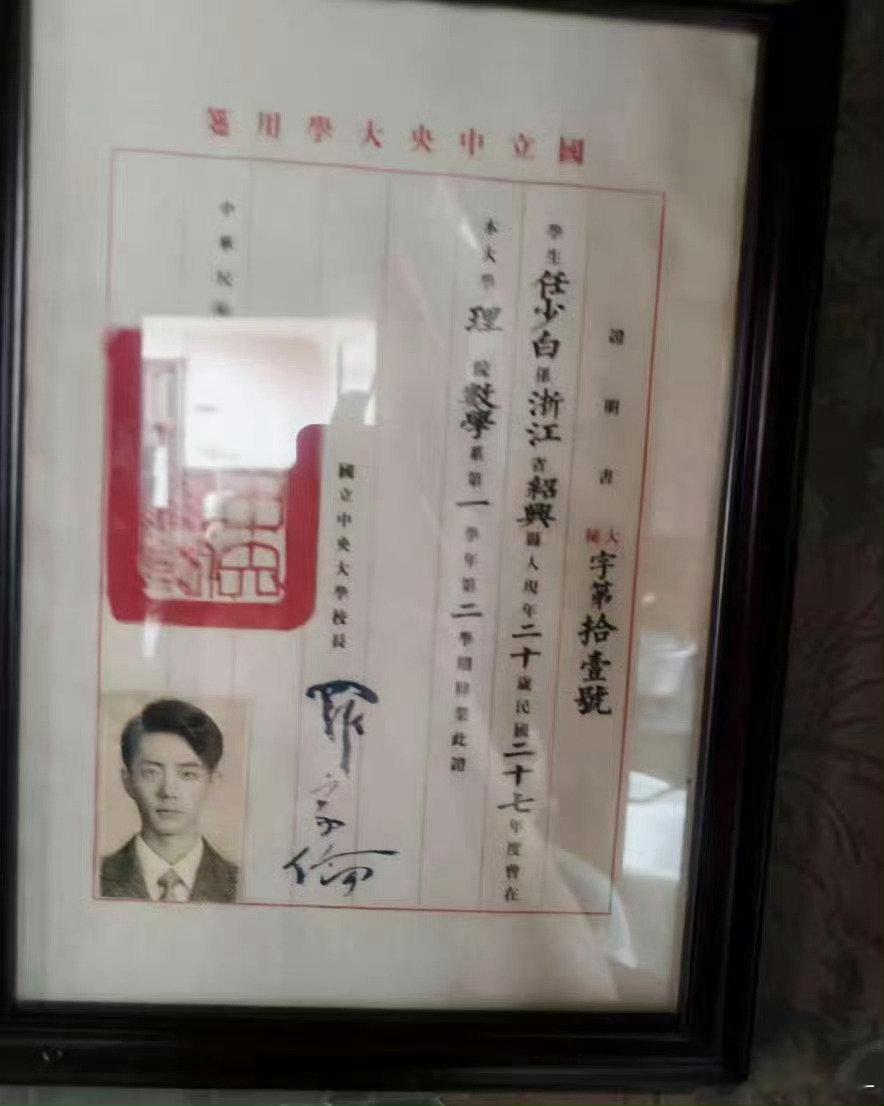 國立中央大學用箋
證明書 大陳字第拾壹號
學生任少白係浙江省紹興縣人現年二十歲民國二十七年度曾在
本大學理院數學系第一學年第二學期肄業此證
國立中央大學校長 羅家倫
中華民